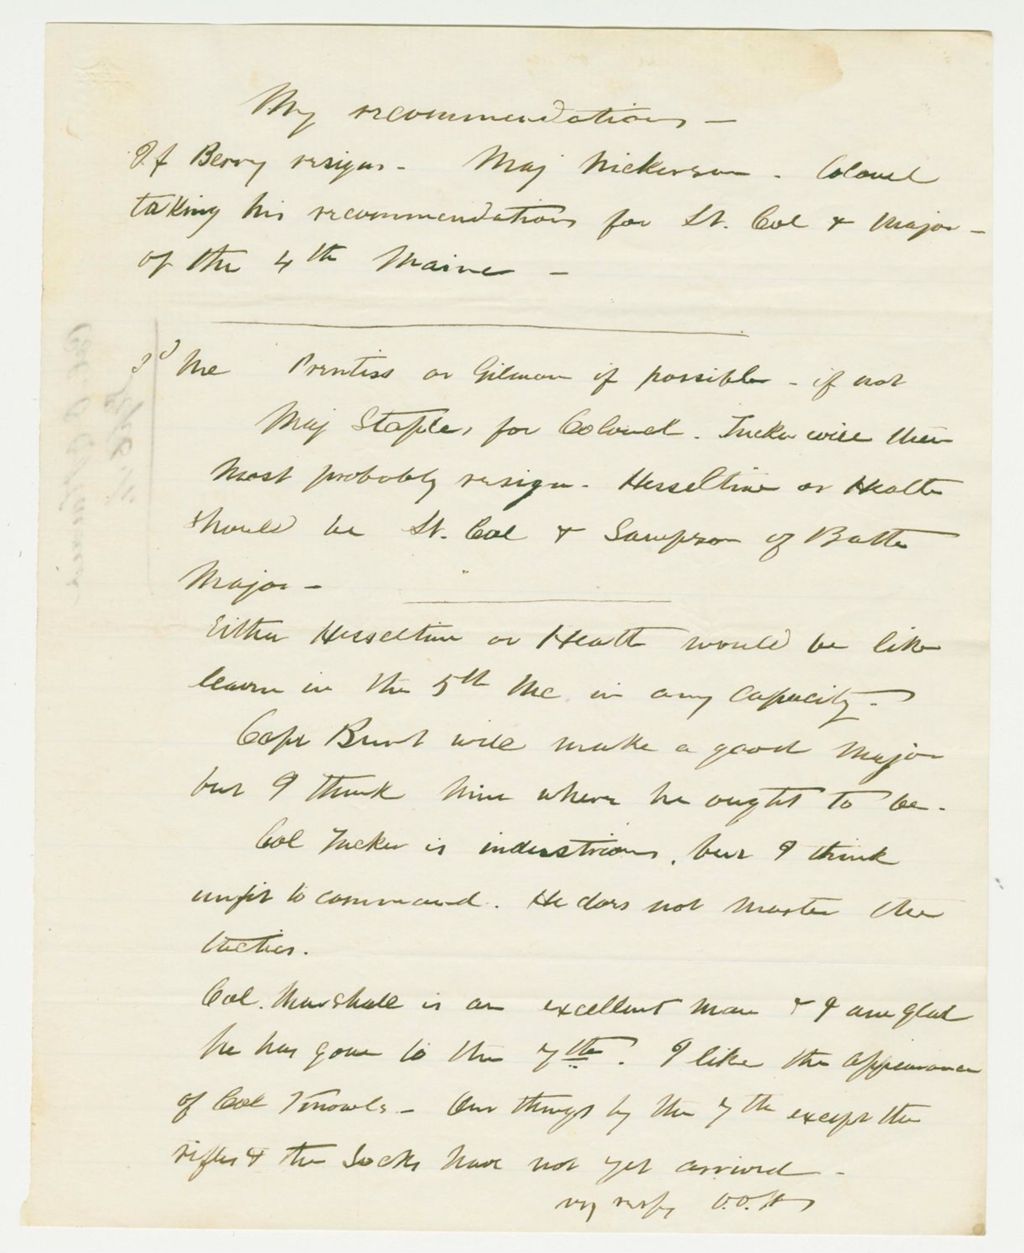 My recommendations —
If Berry resigns - Maj Nickerson - Colonel
taking his recommendations for Lt. Col & Major -
of the 4th Maine —
3d Me Prentiss or Gilman if possible - if not
Maj Staples for Colonel. Tucker will then
most probably resign - Hesseltine or Heath
should be Lt. Col & Sampson of Bath
Major -
Either Hesseltine or Heath would be like
leaven in the 5th Me in any capacity -
Capt Burt will make a good Major
but I think him where he ought to be -
Col Tucker is industrious, but I think
unfit to command. He does not master the
tactics.
Col. Marshall is an excellent man & I am glad
he has gone to the 7th. I like the appearance
of Col Knowls - Our things by the 7th except the
rifles & the Socks have not yet arrived -
O.O.H